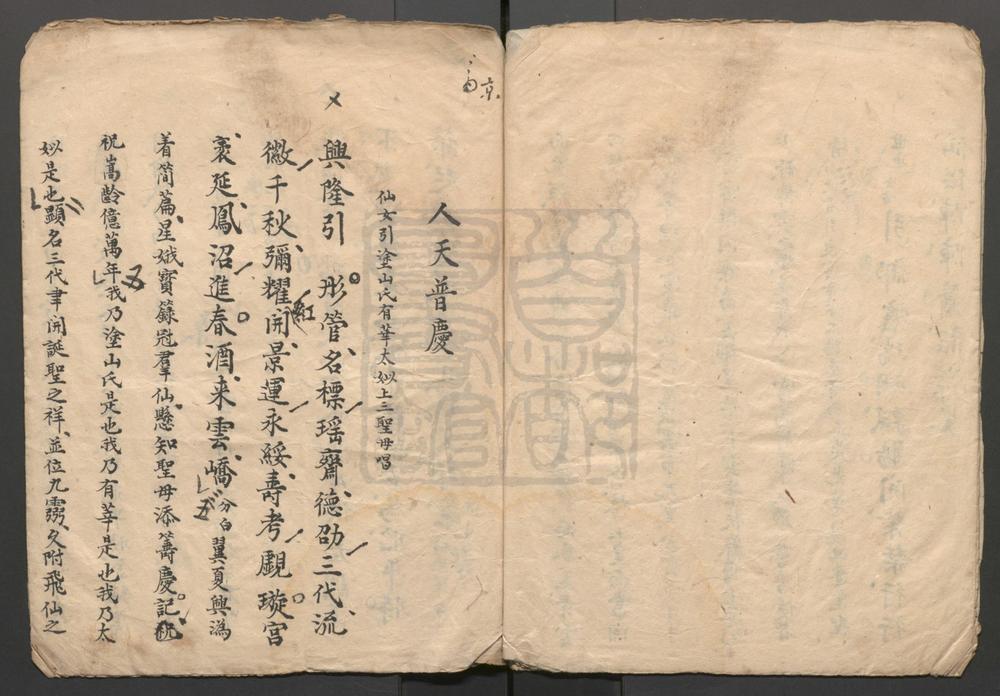 人天普慶
仙女引塗山氏有莘太姒上三聖母唱
興隆引 彤管名標瑤齋德劭三代流
徽千秋彌耀開紅景運永綏壽考覷璇宮
裘延鳳沼進春酒来雲嶠分白翼夏興溈
着簡篇星娥寳籙冠羣仙懸知聖母添籌慶記
祝嵩齡億萬年我乃塗山氏是也我乃有莘是也我乃太
姒是也顯名三代聿開誕聖之祥並位九霛久附飛仙之
京